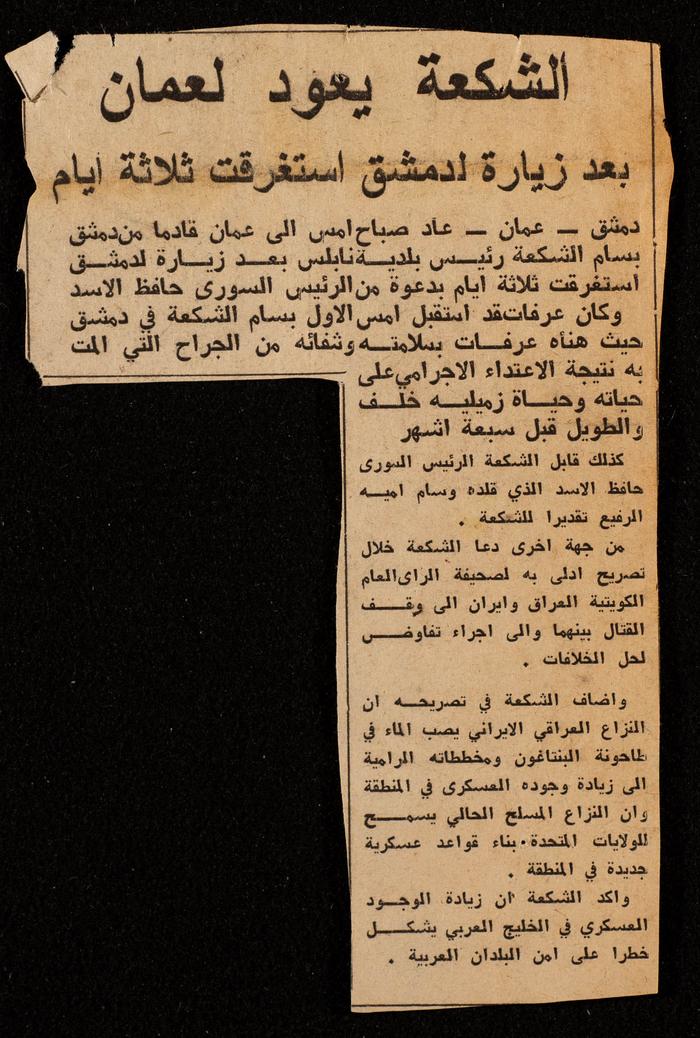 الشكعة يعود لعمان
بعد زيارة لدمشق استغرقت ثلاثة ايام
دمشق — عمان — عاد صباح امس الى عمان قادما من دمشق
بسام الشكعة رئيس بلدية نابلس بعد زيارة لدمشق
استغرقت ثلاثة ايام بدعوة من الرئيس السورى حافظ الاسد
وكان عرفات قد استقبل امس الاول بسام الشكعة في دمشق
حيث هنأه عرفات بسلامته وشفائه من الجراح التي المت
به نتيجة الاعتداء الاجرامي على
حياته وحياة زميليه خلف
والطويل قبل سبعة اشهر
كذلك قابل الشكعة الرئيس السورى
حافظ الاسد الذي قلده وسام اميه
الرفيع تقديرا للشكعة .
من جهة اخرى دعا الشكعة خلال
تصريح ادلى به لصحيفة الراى العام
الكويتية العراق وايران الى وقف
القتال بينهما والى اجراء تفاوض
لحل الخلافات .
واضاف الشكعة في تصريحه ان
النزاع العراقي الايراني يصب الماء في
طاحونة البنتاغون ومخططاته الرامية
الى زيادة وجوده العسكرى في المنطقة
وان النزاع المسلح الحالي يسمح
للولايات المتحدة بناء قواعد عسكرية
جديدة في المنطقة .
واكد الشكعة ان زيادة الوجود
العسكري في الخليج العربي يشكل
خطرا على امن البلدان العربية .